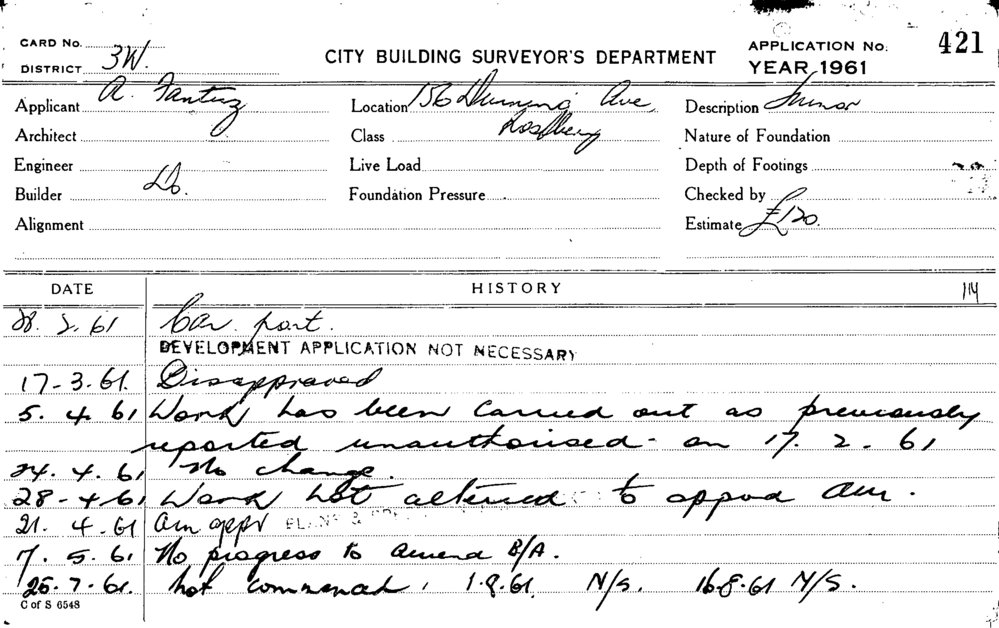 CARD No.
DISTRICT 3W.
CITY BUILDING SURVEYOR'S DEPARTMENT
APPLICATION No. 421
YEAR 1961
Applicant A. Fantuz Location 156 Dunning Ave, Description Minor
Architect Class Rosebery Nature of Foundation
Engineer Live Load Depth of Footings
Builder Do. Foundation Pressure Checked by
Alignment Estimate £120.
DATE HISTORY 114
28. 2. 61 Car port.
DEVELOPMENT APPLICATION NOT NECESSARY
17-3.61. Disapproved
5. 4 61 Work has been carried out as previously
reported unauthorised - on 17. 2. 61
24. 4. 61 No change.
28-4 61 Work not altered to appvd Am.
21. 4.61 Am appv PLANS &
7. 5. 61 No progress to amend B/A.
26.7.61. Not commenced. 1.9.61. N/S. 16.8.61 N/S.
C of S 6548